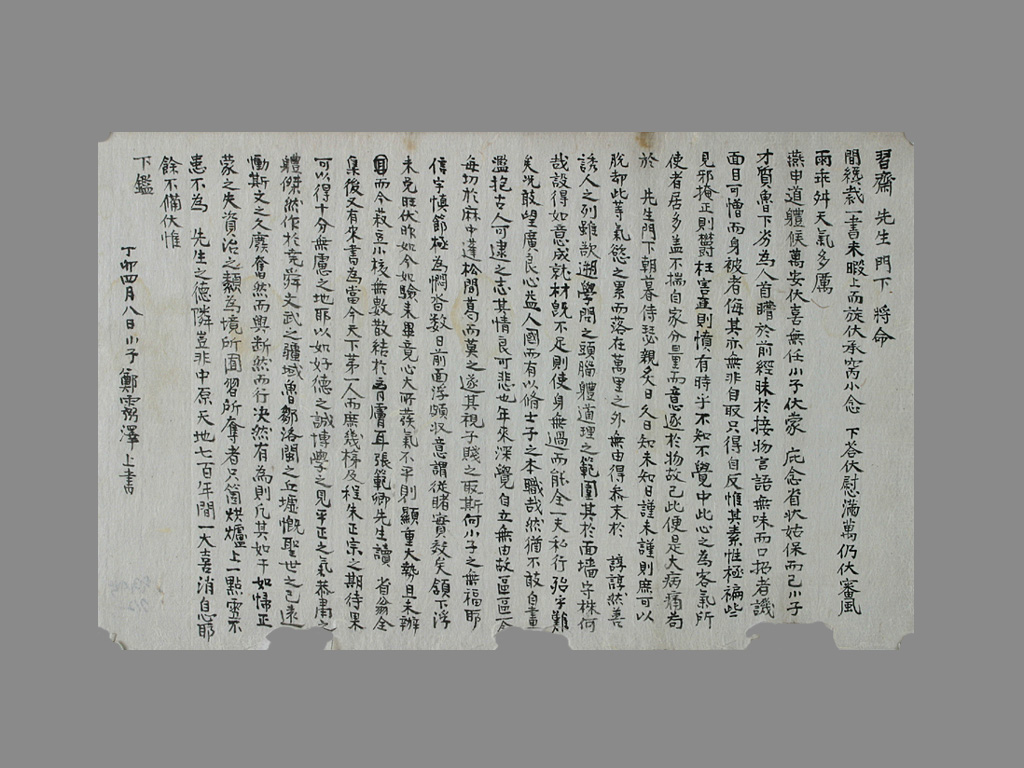 習齋 先生 門下 將命
間纔裁一書未暇上而旋伏承窮小念 下答伏慰滿萬仍伏審風
雨乖舛天氣多厲
燕申道體候萬安伏喜無任小子伏蒙 庇念省狀姑保而已小子
才質魯下劣為人首瞶於前經昧於接物言語無味而口招者譏
面目可憎而身被者侮其亦無非自取只得自反惟其素性極褊些
見邪掩正則欝枉害直則憤有時乎不知不覺中此心之為客氣所
使者居多盖不揣自家分量而意逐於物故已此便是大病痛苟
於 先生門下朝暮侍瑟親炙日久日知未知日謹未謹則庶可以
脫却此等氣慾之累而落在萬里之外無由得叅末於 諄諄然善
誘人之列雖欲遡學問之頭腦體道理之範圍其於面墻守株何
哉設得如意成就材旣不足則使身無過而能全一夫私行殆乎難
矣况敢望廣良心益人國而有以脩士子之本職哉然猶不敢自畫
濫抱古人可逮之志其情良可悲也年來深覺自立無由故區區合
每切於麻中蓬松間葛而莫之遂其視子賤之取斯何小子之無福耶
信宇愼節極為憫沓数日前面浮頗收意謂從睹實效矣頷下浮
未免旺伏昨如今如驗未畢竟心大所蔟氣不平則顯重大勢且未辦
圓而今菽豆小核無數散結於育膚耳張範卿先生讀 省翁全
集後又有來書為當今天下苐一人而庶幾梯及程朱正宗之期待果
可以得十分無慮之地耶以如好德之誠博學之見平正之氣恭肅之
體傑然作於堯舜文武之疆域魯鄒洛閩之丘墟慨聖世之已遠
慟斯文之久廢奮然而興斬然而行决然有為則凡其如干如歸正
蒙之失資治之纇為境所囿習所奪者只箇烘爐上一點雪不
患不為 先生之德隣豈非中原天地七百年間一大吉消息耶
餘不備伏惟
下鑑
丁卯四月八日小子鄭霱澤上書